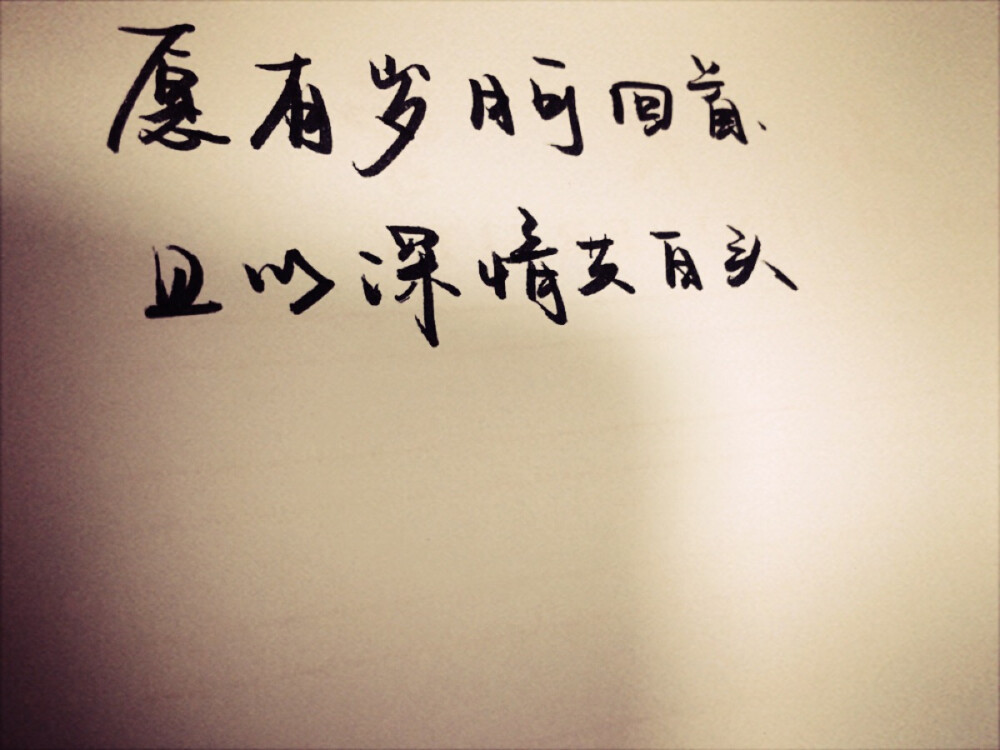 愿有岁月可回首、
且以深情共百头